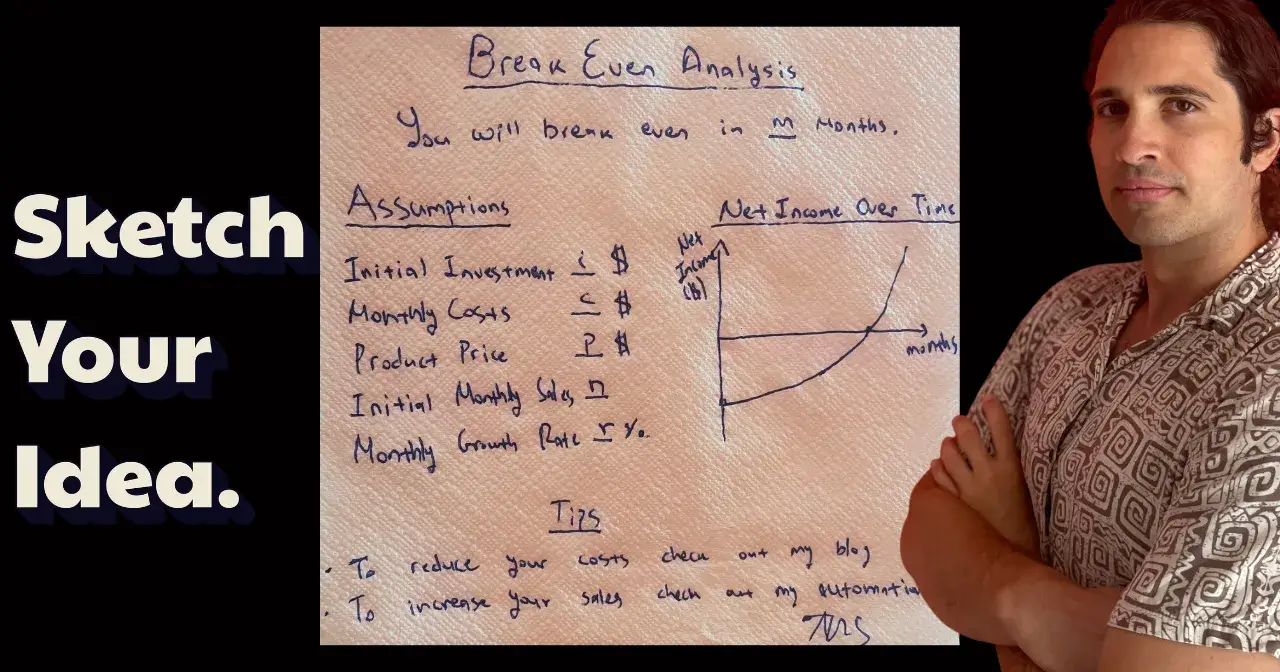 Sketch
Your
Idea.
Break Even Analysis
You will break even in m Months.
Assumptions
Initial Investment i $
Monthly Costs c $
Product Price P $
Initial Monthly Sales n
Monthly Growth Rate r %.
Net Income Over Time
Net
Income
($)
months
Tips
• To reduce your costs check out my blog
• To increase your sales check out my